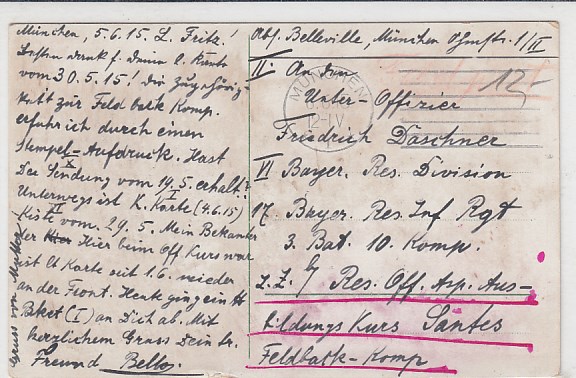 München, 5.6.15. L. Fritz!
Besten dank f. deine l. Karte
vom 30.5.15! Die Zugehörig-
keit zur Feld back Komp.
erfuhr ich durch einen
Stempel-Aufdruck. Hast
Du Sendung vom 19.5. erhalt?
Unterwegs ist K. Karte (4.6.15)
Kiste vom 29.5. Mein Bekannter
der Hier beim Off Kurs war
ist Karte seit 1.6. wieder
an der Front. Heute ging ein
Paket (I) an Dich ab. Mit
herzlichem Gruss Dein tr.
Freund Bello.
Gruss von Mutter
Abs. Belleville, München 1/II
An den
MÜNCHEN
12-IV
12
Unter-Offizier
Friedrich Daschner
VI Bayer. Res. Division
17. Bayer. Res. Inf Rgt
3. Bat. 10. Komp.
z. Z. b/ Res. Off. Asp. Aus-
bildungs Kurs Santes
Feldback-Komp